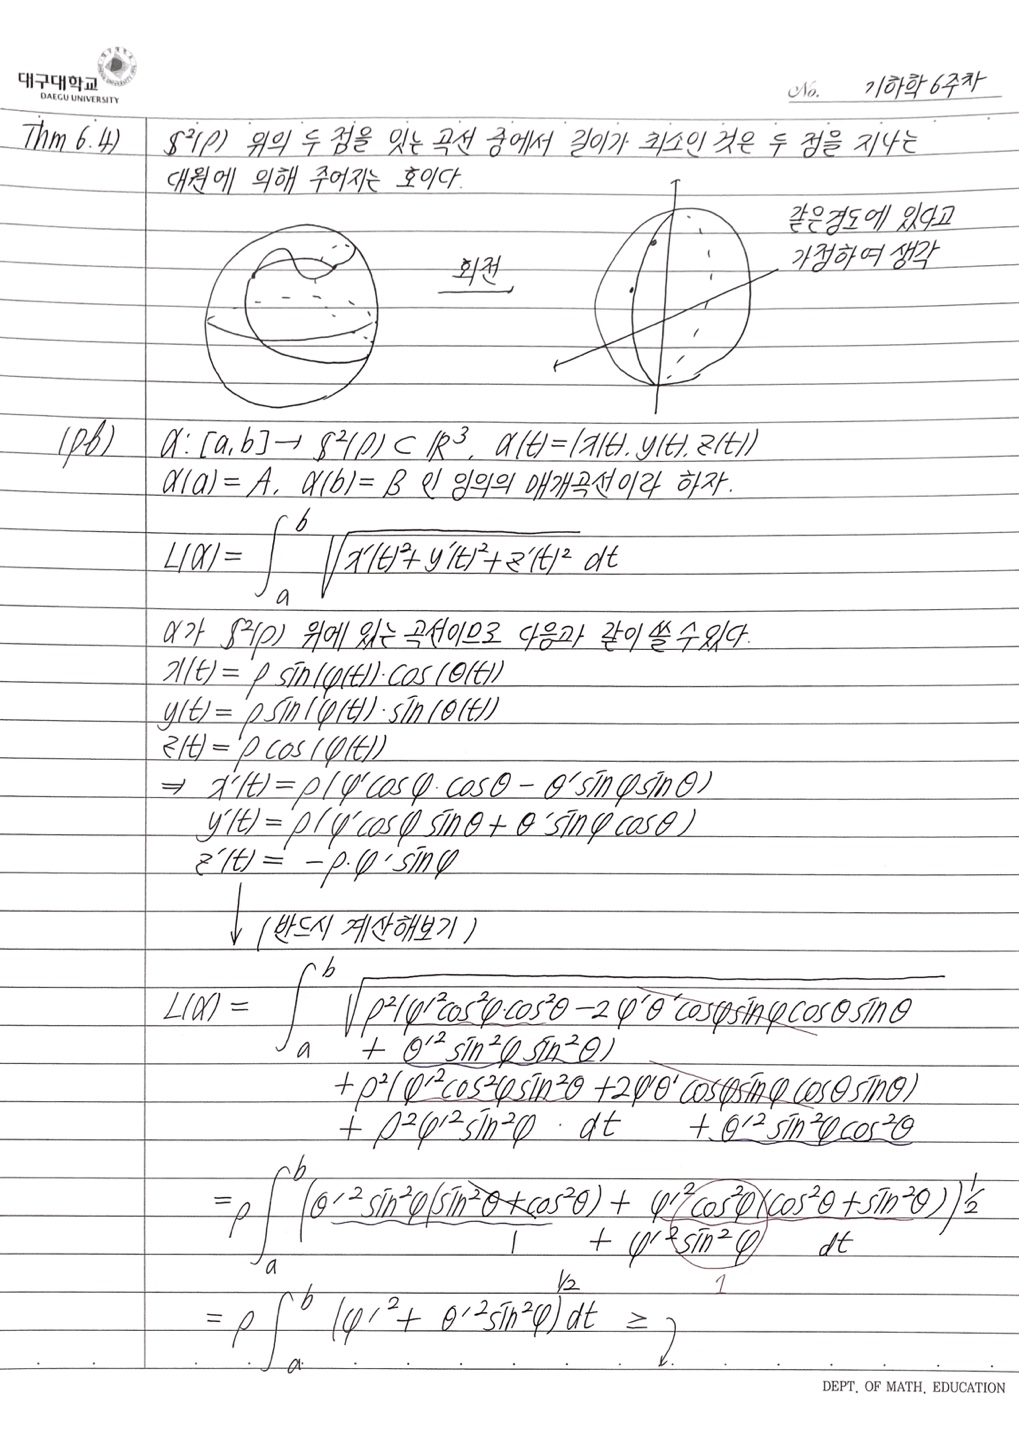 대구대학교
DAEGU UNIVERSITY
No. 기하학 6주차
Thm 6.4) S²(ρ) 위의 두 점을 잇는 곡선 중에서 길이가 최소인 것은 두 점을 지나는
대원에 의해 주어지는 호이다.
회전
같은경도에 있다고
가정하여 생각
(pf) α: [a,b] → S²(ρ) ⊂ ℝ³, α(t)=(x(t), y(t), z(t))
α(a)=A, α(b)=B 인 임의의 매개곡선이라 하자.
L(α) = ∫_a^b √(x'(t)²+y'(t)²+z'(t)²) dt
α가 S²(ρ) 위에 있는 곡선이므로 다음과 같이 쓸 수 있다.
x(t) = ρ sin(φ(t))·cos(θ(t))
y(t) = ρ sin(φ(t))·sin(θ(t))
z(t) = ρ cos(φ(t))
⇒ x'(t) = ρ(φ'cosφ·cosθ − θ'sinφsinθ)
y'(t) = ρ(φ'cosφ sinθ + θ'sinφ cosθ)
z'(t) = −ρ·φ'sinφ
↓ (반드시 계산해보기)
L(α) = ∫_a^b √ρ²(φ'²cos²φ·cos²θ −2φ'θ'cosφsinφcosθsinθ
+ θ'²sin²φ sin²θ)
+ρ²(φ'²cos²φsin²θ +2φ'θ'cosφsinφ cosθsinθ)
+ ρ²φ'²sin²φ · dt + θ'²sin²φcos²θ
= ρ ∫_a^b (θ'²sin²φ(sin²θ+cos²θ) + φ'²cos²φ(cos²θ+sin²θ))^½
1 + φ'²sin²φ) dt
1
= ρ ∫_a^b (φ'²+ θ'²sin²φ)^1/2 dt ≥
DEPT. OF MATH. EDUCATION